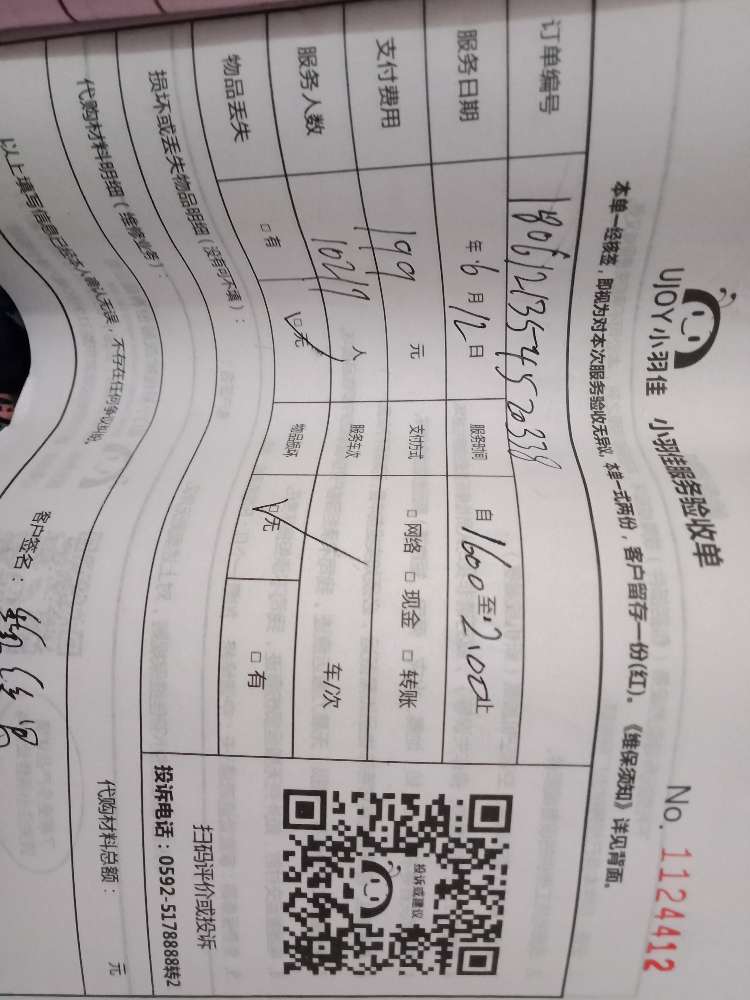 UJOY小羽佳 小羽佳服务验收单 No. 1124412
本单一经核签，即视为对本次服务验收无异议，本单一式两份，客户留存一份(红)。《维保须知》详见背面。
订单编号
服务日期 年 6 月 12 日 服务时间 自 1600 至 2.00 止
支付费用 199 元 支付方式 □ 网络 □ 现金 □ 转账
服务人数 人 服务车次 车/次
物品丢失 □ 有 ☑ 无 物品损坏 ☑ 无 □ 有
损坏或丢失物品明细（没有可不填）：
代购材料明细（维修业务）： 代购材料总额： 元
以上填写信息已经本人确认无误，不存在任何争议纠纷。 客户签名：
投诉或建议
扫码评价或投诉
投诉电话：0592-5178888转2